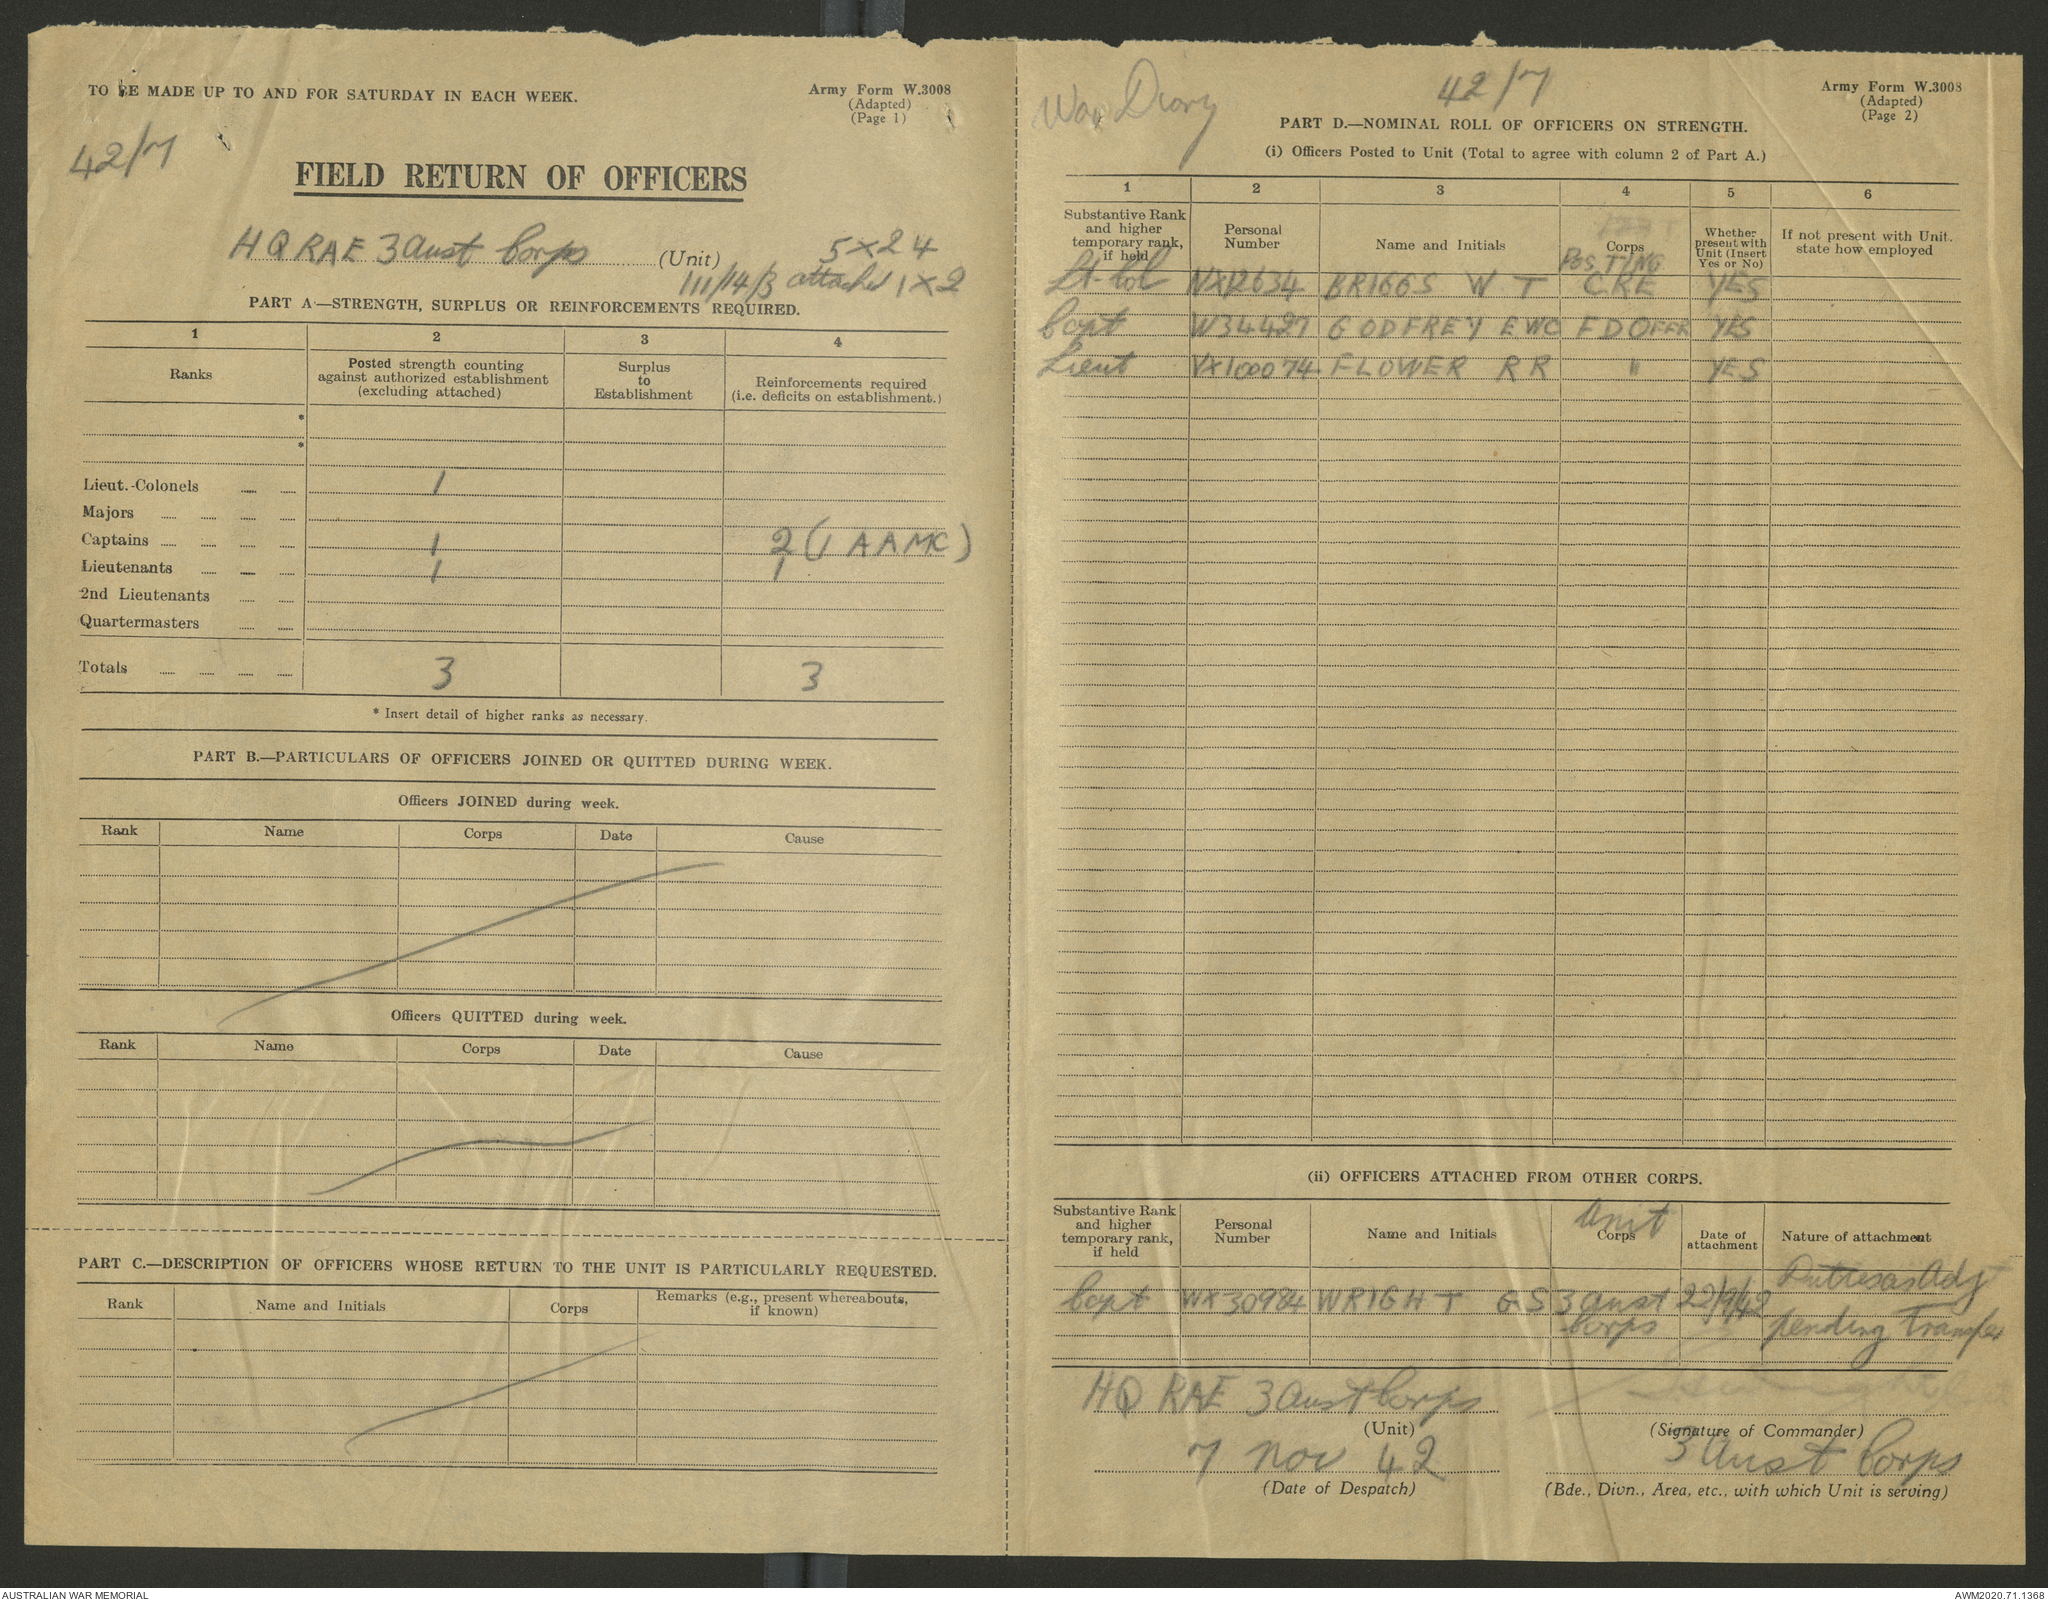 TO BE MADE UP TO AND FOR SATURDAY IN EACH WEEK.
Army Form W.3008
(Adapted)
(Page 1)
42/7
FIELD RETURN OF OFFICERS
HQ RAE 3 Aust Corps (Unit) 5 x 24
111/14/3 attached 1 x 2
PART A.—STRENGTH, SURPLUS OR REINFORCEMENTS REQUIRED.
1 2 3 4
Ranks
Posted strength counting
against authorized establishment
(excluding attached)
Surplus
to
Establishment
Reinforcements required
(i.e. deficits on establishment.)
*
*
Lieut.-Colonels 1
Majors
Captains 1 2 (1 AAMC)
Lieutenants 1 1
2nd Lieutenants
Quartermasters
Totals 3 3
* Insert detail of higher ranks as necessary.
PART B.—PARTICULARS OF OFFICERS JOINED OR QUITTED DURING WEEK.
Officers JOINED during week.
Rank Name Corps Date Cause
Officers QUITTED during week.
Rank Name Corps Date Cause
PART C.—DESCRIPTION OF OFFICERS WHOSE RETURN TO THE UNIT IS PARTICULARLY REQUESTED.
Rank Name and Initials Corps Remarks (e.g., present whereabouts,
if known)
War Diary 42/7
Army Form W.3008
(Adapted)
(Page 2)
PART D.—NOMINAL ROLL OF OFFICERS ON STRENGTH.
(i) Officers Posted to Unit (Total to agree with column 2 of Part A.)
1 2 3 4 5 6
Substantive Rank
and higher
temporary rank,
if held
Personal
Number
Name and Initials
Corps
POSTING
Whether
present with
Unit (Insert
Yes or No)
If not present with Unit.
state how employed
Lt-Col NX12634 BRIGGS W T CRE YES
Capt W34427 GODFREY EWC FD OFFR YES
Lieut VX100074 FLOWER RR " YES
(ii) OFFICERS ATTACHED FROM OTHER CORPS.
Substantive Rank
and higher
temporary rank,
if held
Personal
Number
Name and Initials
Unit
Corps
Date of
attachment
Nature of attachment
Capt WX30984 WRIGHT G S 3 Aust Corps 22/9/42 Duties as Adjt
pending Transfer
HQ RAE 3 Aust Corps
(Unit)
(Signature of Commander)
7 Nov 42
(Date of Despatch)
3 Aust Corps
(Bde., Divn., Area, etc., with which Unit is serving)
AUSTRALIAN WAR MEMORIAL
AWM2020.71.1368